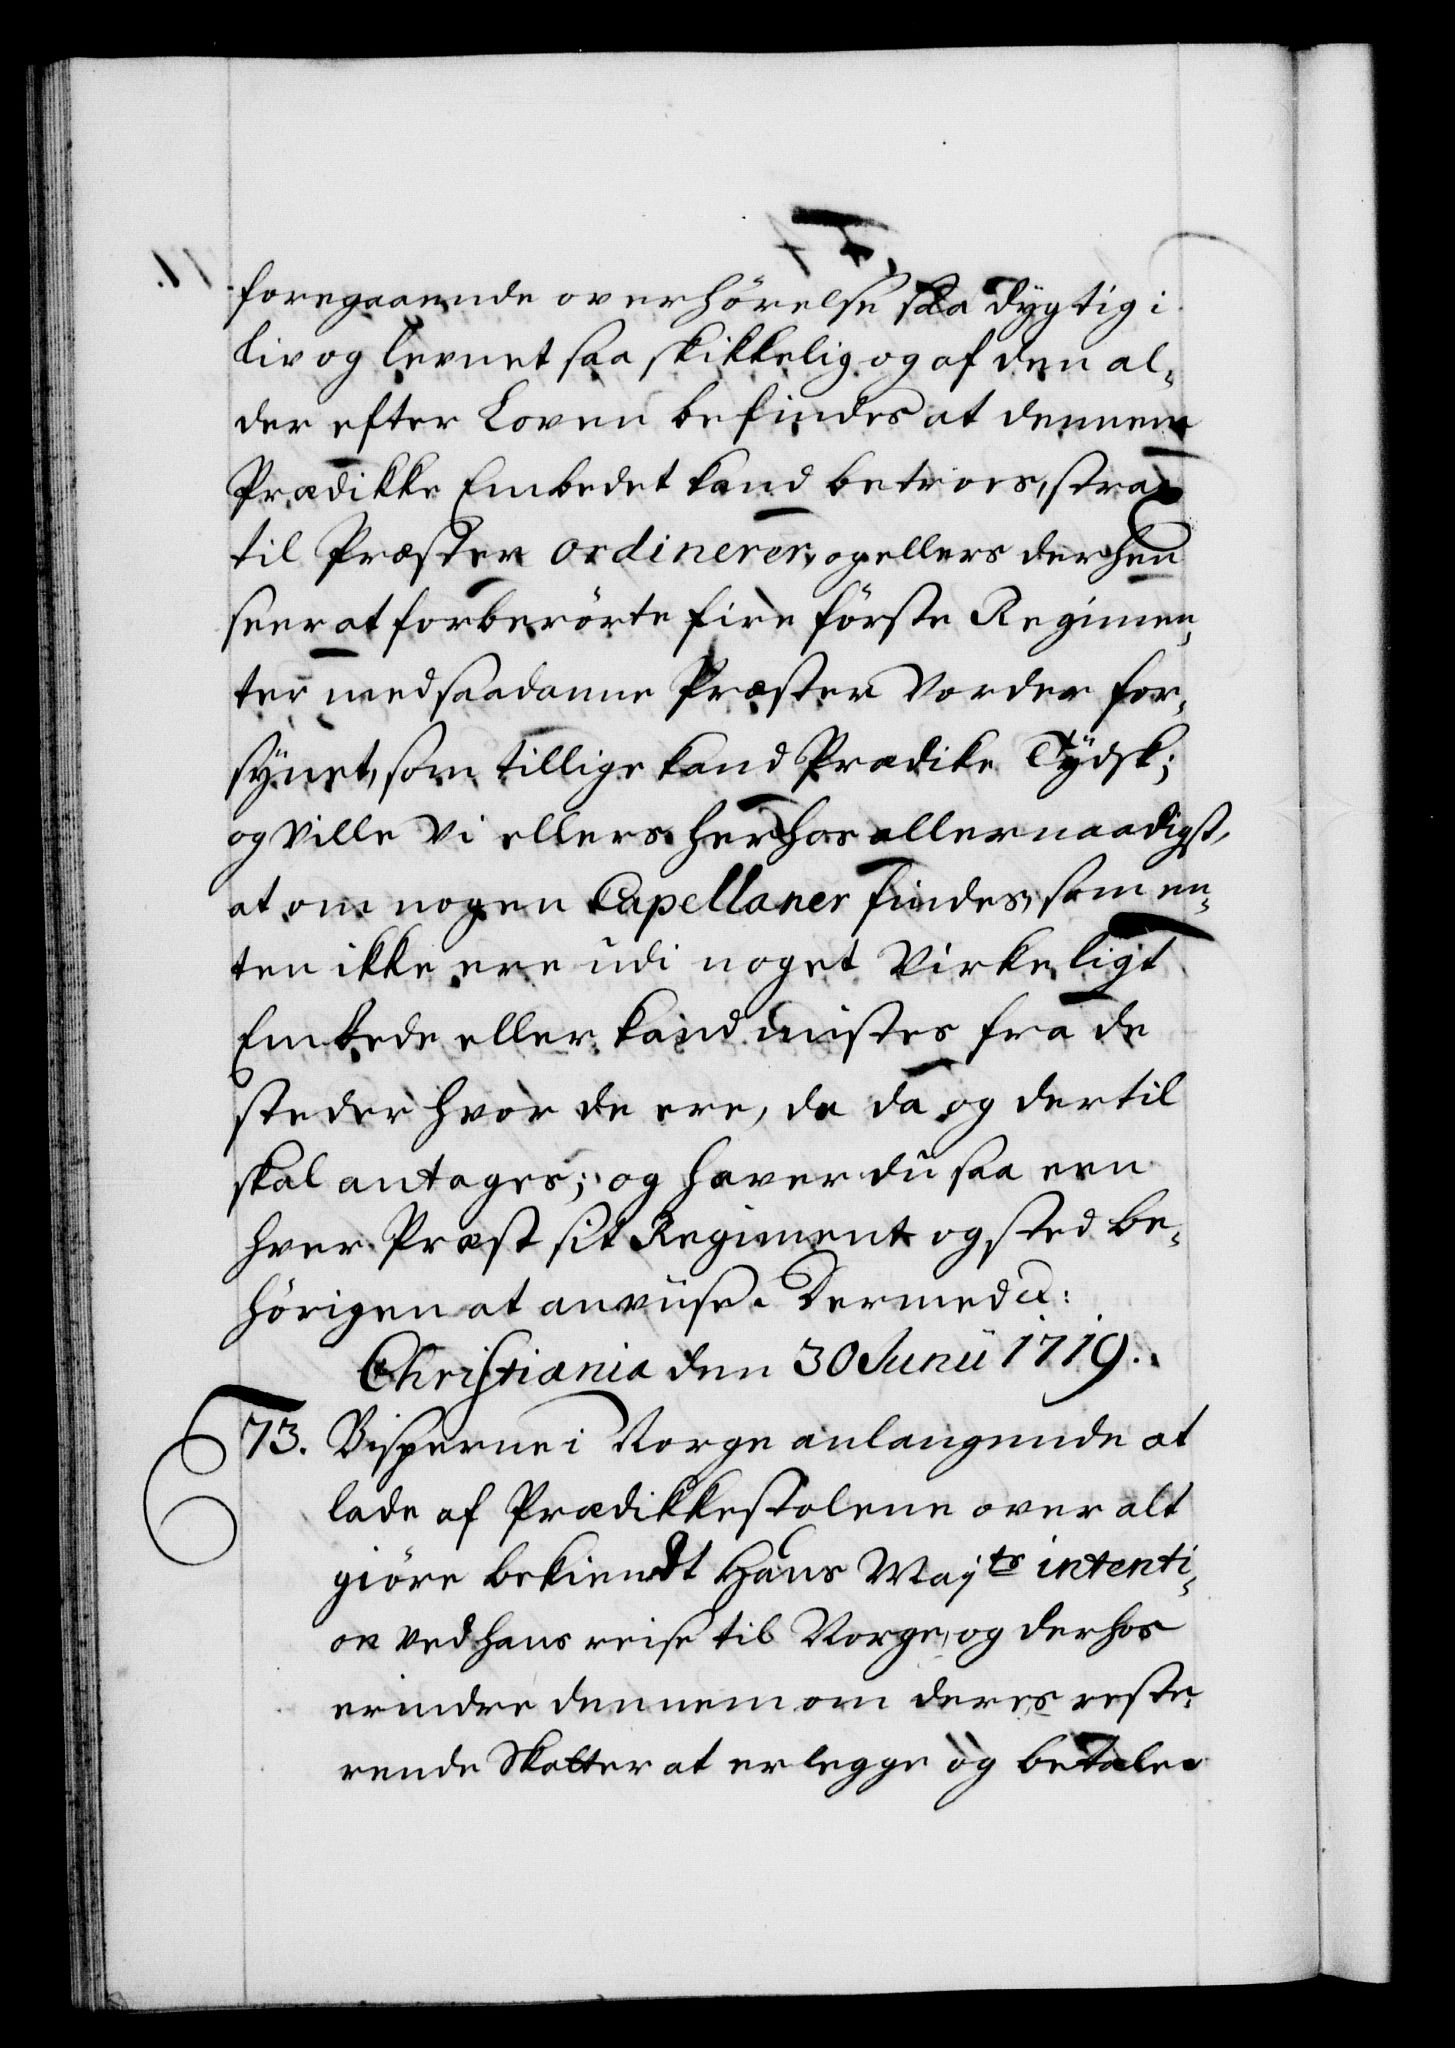 foregaaende overhörelse saa dygtig i
liv og levnet saa skikkelig og af den al-
der efter Loven befindes at dennem
Prædikke Embedet kand betroes, strax
til Præster ordinerer, og ellers derhen
seer at forberörte fire förste Regimen-
ter med saadanne Præster vorder for-
synet, som tillige kand Prædike Tydsk;
og ville vi ellers herhos allernaadigst,
at om nogen Capellaner findes, som en-
ten ikke ere udi noget virkeligt
Embede eller kand mistes fra de
steder hvor de ere, de da og dertil
skal antages; og haver du saa een
hver Præst sit Regiment og sted be-
hörigen at anviise. Dermed &:
Christiania den 30 Junii 1719.
73. Bisperne i Norge anlangende at
lade af Prædikkestolene over alt
giöre bekiendt Hans Majts intenti-
on ved hans reise til Norge, og derhos
erindre dennem om deres reste-
rende Skatter at erlegge og betale.